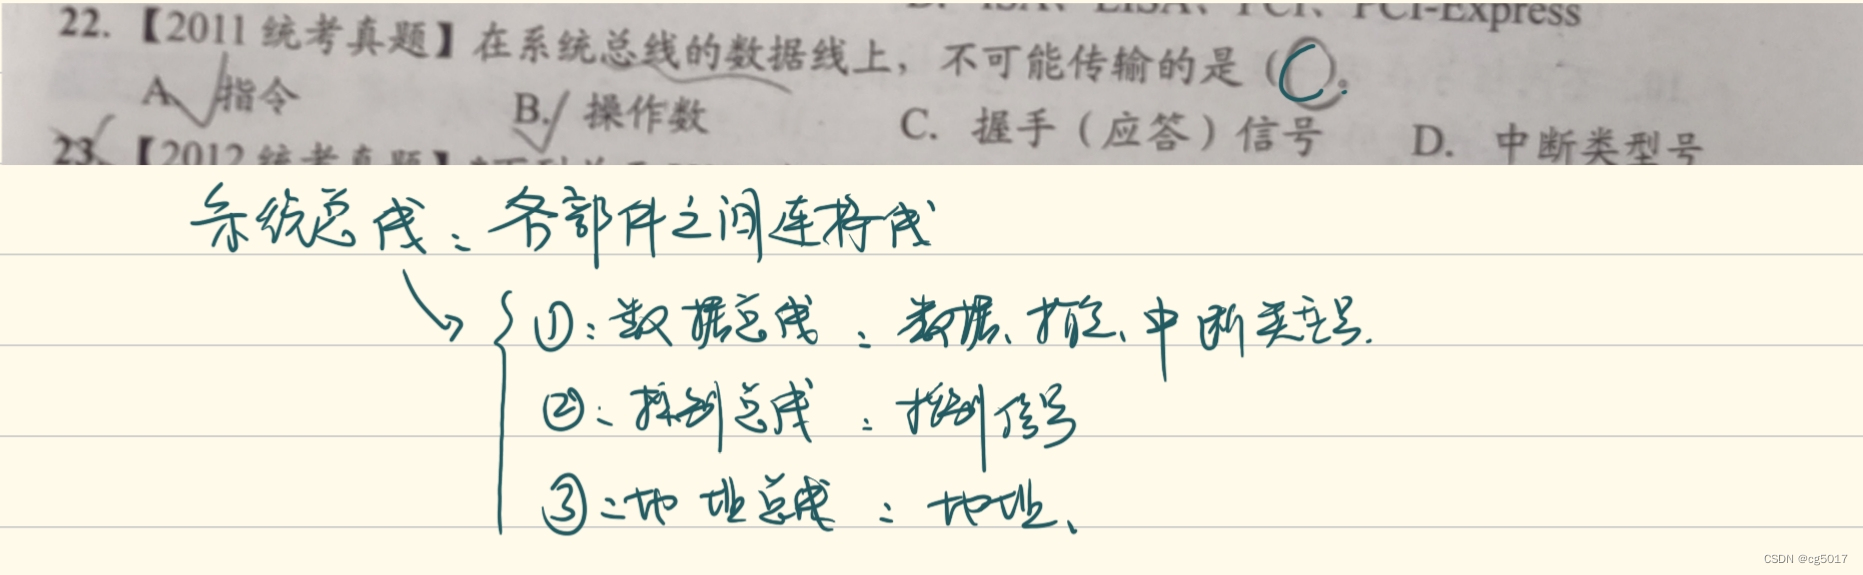 D. ISA、EISA、PCI、PCI-Express
22. 【2011 统考真题】在系统总线的数据线上，不可能传输的是（C）。
A. 指令 B. 操作数 C. 握手（应答）信号 D. 中断类型号
23. 【2012 统考真题】
系统总线：各部件之间连接线
①：数据总线：数据、指令、中断类型号.
②：控制总线：控制信号
③：地址总线：地址、
CSDN @cg5017